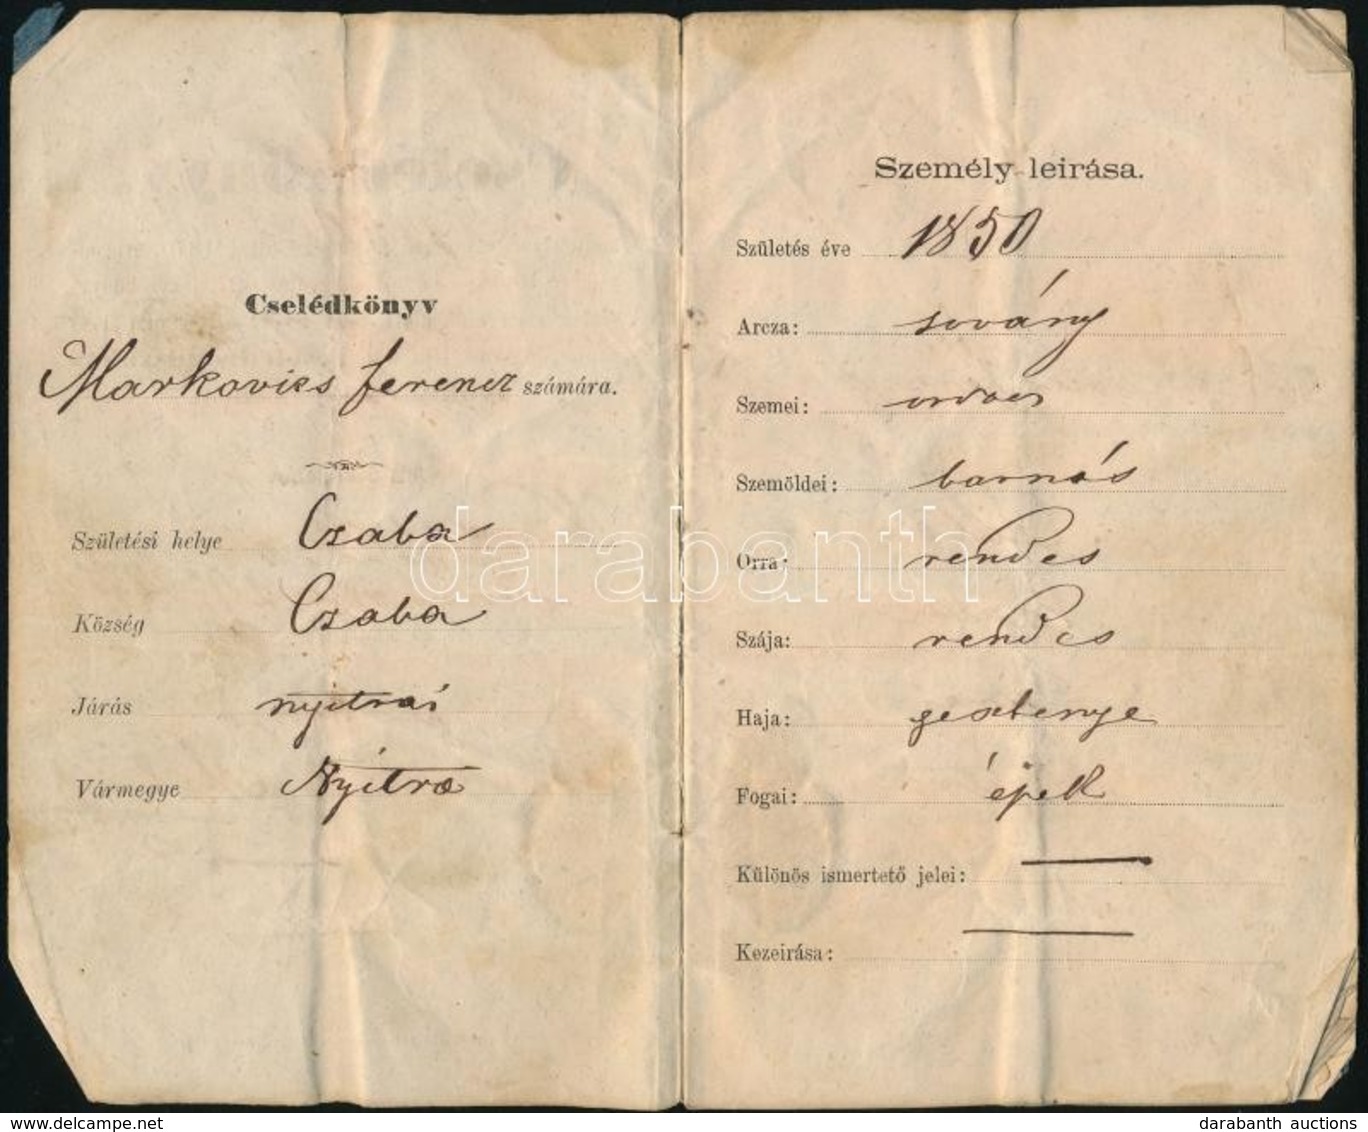 Cselédkönyv
Markovics ferencz számára.
Születési helye Czaba
Község Czaba
Járás nyitrai
Vármegye Nyitra
Személy leirása.
Születés éve 1850
Arcza: sovány
Szemei:
Szemöldei: barnás
Orra: rendes
Szája: rendes
Haja: gesztenye
Fogai: épek
Különös ismertető jelei: —
Kezeirása: —
darabanth
darabanth auctions